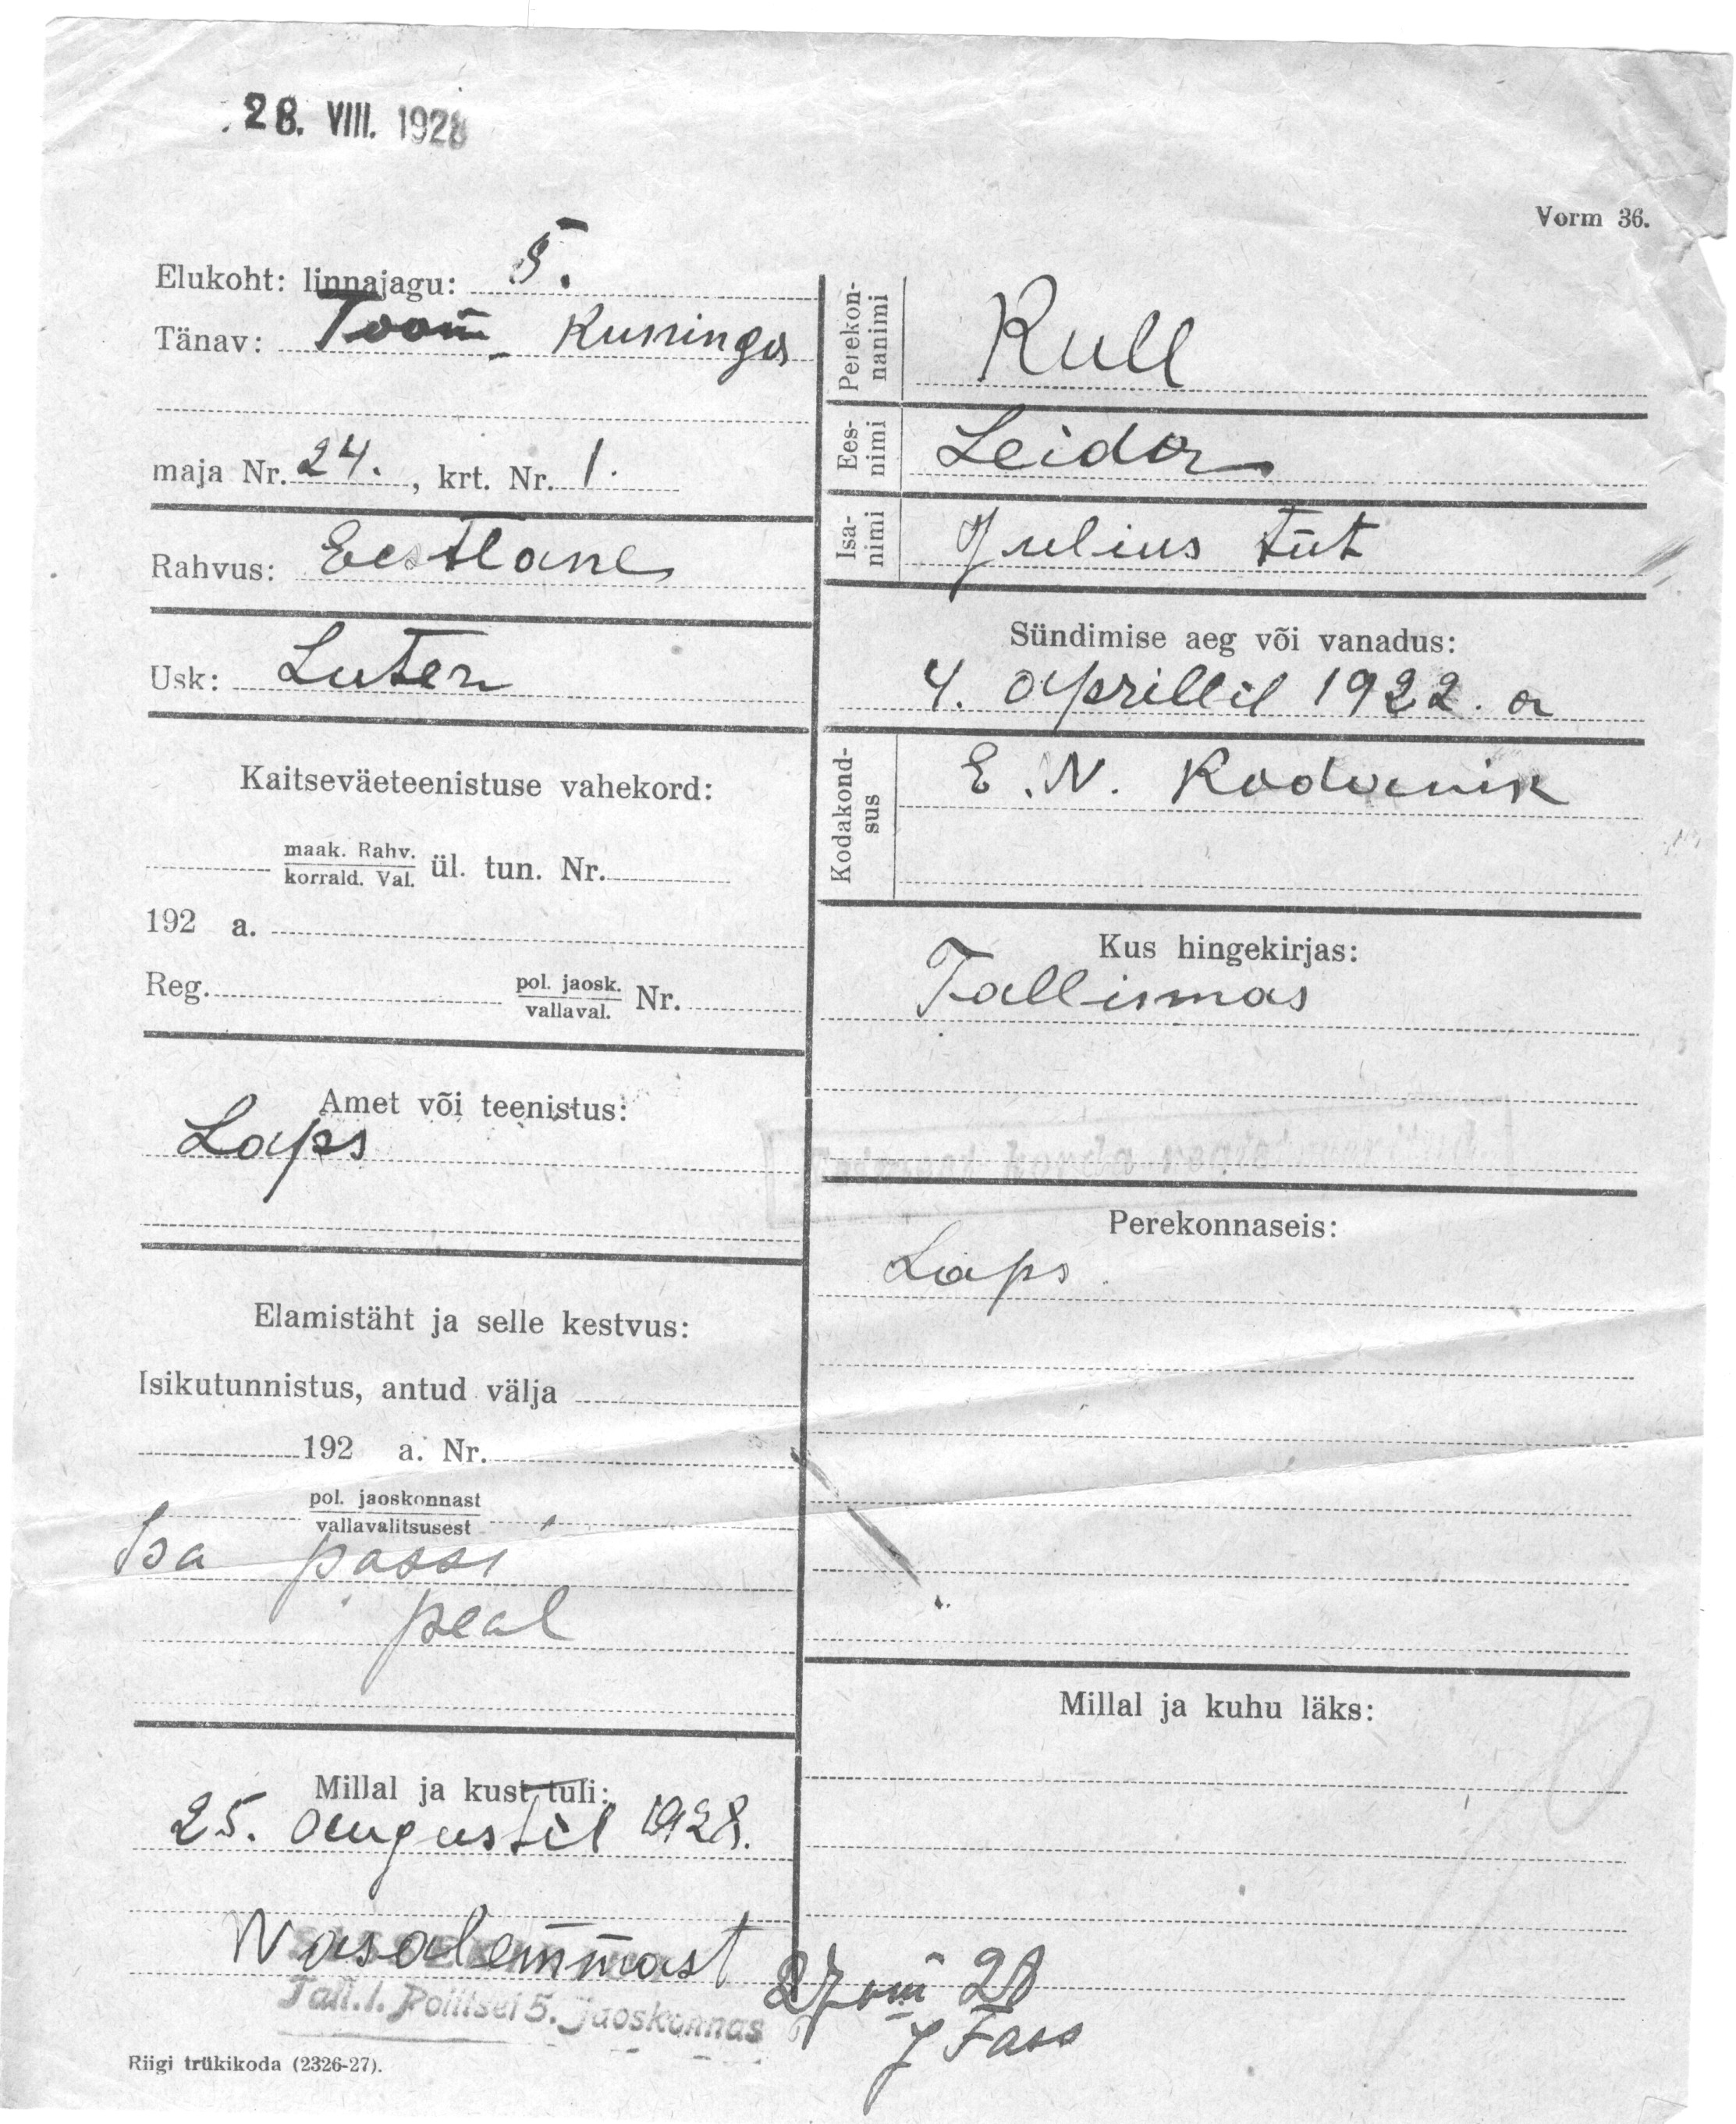 28. VIII. 1928
Vorm 36.
Elukoht: linnajagu: 5.
Tänav: Toom-Kuninga
maja Nr. 24., krt. Nr. 1.
Rahvus: Eestlane
Usk: Luter
Kaitseväeteenistuse vahekord:
maak. Rahv.
korrald. Val. ül. tun. Nr.
192 a.
Reg. pol. jaosk.
vallaval. Nr.
Amet või teenistus:
Laps
Elamistäht ja selle kestvus:
Isikutunnistus, antud välja
192 a. Nr.
pol. jaoskonnast
vallavalitsusest
Isa passi
peal
Millal ja kust tuli:
25. augustil 1928.
Wasalemmast
Tall. l. Politsei 5. jaoskonnas
Riigi trükikoda (2326-27).
Perekon-
nanimi
Kull
Ees-
nimi
Leida
Isa-
nimi
Julius tüt
Sündimise aeg või vanadus:
4. aprillil 1922. a
Kodakond-
sus
E. W. Kodanik
Kus hingekirjas:
Tallinnas
Perekonnaseis:
Laps.
Millal ja kuhu läks:
27 VIII 28